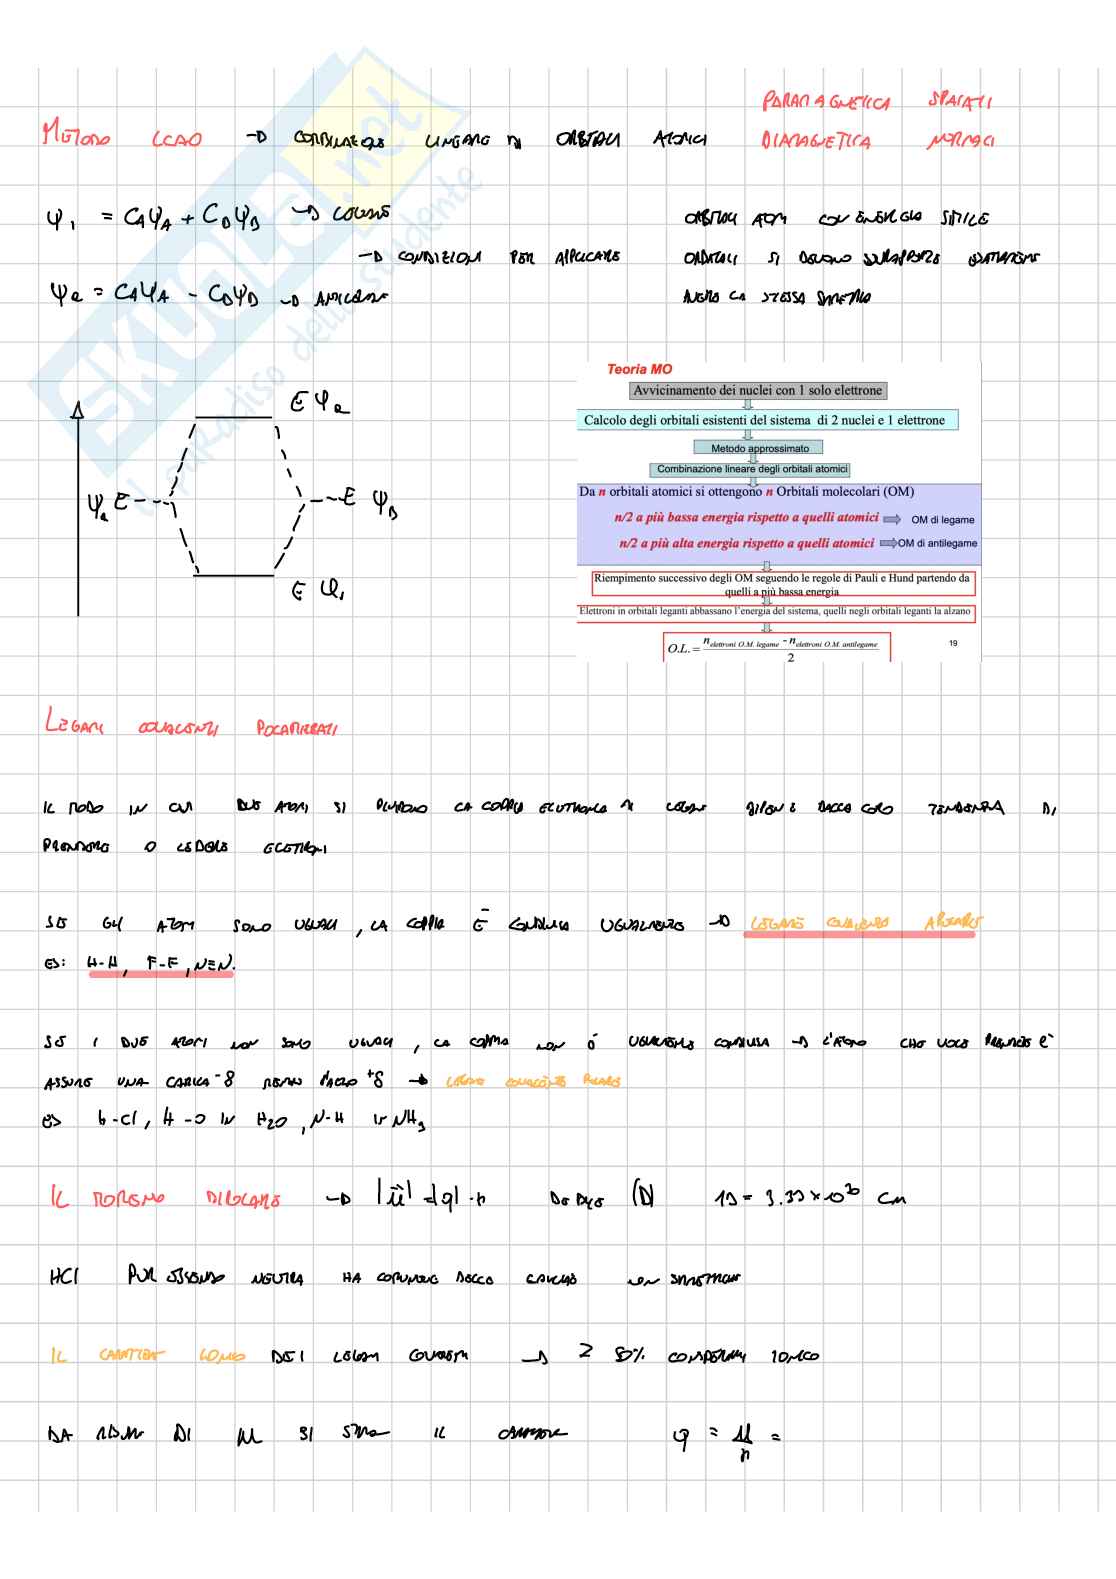 PARAMAGNETICA SPAIATI
METODO LCAO → COMBINAZIONE LINEARE DI ORBITALI ATOMICI DIAMAGNETICA NORMALI
SKUOLA.net
il paradiso dello studente
φ₁ = CAψA + CBψB → LEGAME ORBITALI ATOM CON ENERGIA SIMILE
→ CONDIZIONI PER APPLICARE ORBITALI SI DEVONO SOVRAPPORRE
φ₂ = CAψA − CBψB → ANTILEGAME AVERE LA STESSA SIMMETRIA
E φ₂
ψa E E ψB
E φ₁
Teoria MO
Avvicinamento dei nuclei con 1 solo elettrone
Calcolo degli orbitali esistenti del sistema di 2 nuclei e 1 elettrone
Metodo approssimato
Combinazione lineare degli orbitali atomici
Da n orbitali atomici si ottengono n Orbitali molecolari (OM)
n/2 a più bassa energia rispetto a quelli atomici OM di legame
n/2 a più alta energia rispetto a quelli atomici OM di antilegame
Riempimento successivo degli OM seguendo le regole di Pauli e Hund partendo da
quelli a più bassa energia
Elettroni in orbitali leganti abbassano l'energia del sistema, quelli negli orbitali leganti la alzano
O.L. = n elettroni O.M. legame - n elettroni O.M. antilegame / 2
19
LEGAMI COVALENTI POLARIZZATI
IL MODO IN CUI DUE ATOMI SI DIVIDONO LA COPPIA ELETTRONICA DI LEGAME DIPENDE DALLA LORO TENDENZA DI
PRENDERE O CEDERE ELETTRONI
SE GLI ATOMI SONO UGUALI, LA COPPIA È CONDIVISA UGUALMENTE → LEGAME COVALENTE APOLARE
ES: H-H, F-F, N≡N.
SE I DUE ATOMI NON SONO UGUALI, LA COPPIA NON È UGUALMENTE CONDIVISA → L'ATOMO CHE VUOLE PRENDERE e⁻
ASSUME UNA CARICA -δ +δ → LEGAME COVALENTE POLARE
ES H-Cl, H-O IN H2O, N-H IN NH3
IL MOMENTO DIPOLARE → |ū| = |q|·r DEBYE (D) 1D = 3.33×10³⁰ CM
HCl PUR ESSENDO NEUTRA HA DELLE CARICHE NON SIMMETRICHE
IL CARATTERE IONICO DEI LEGAMI COVALENTI → ≥ 50% IONICO
DA DI μ SI STIMA IL CARATTERE q = μ/r =